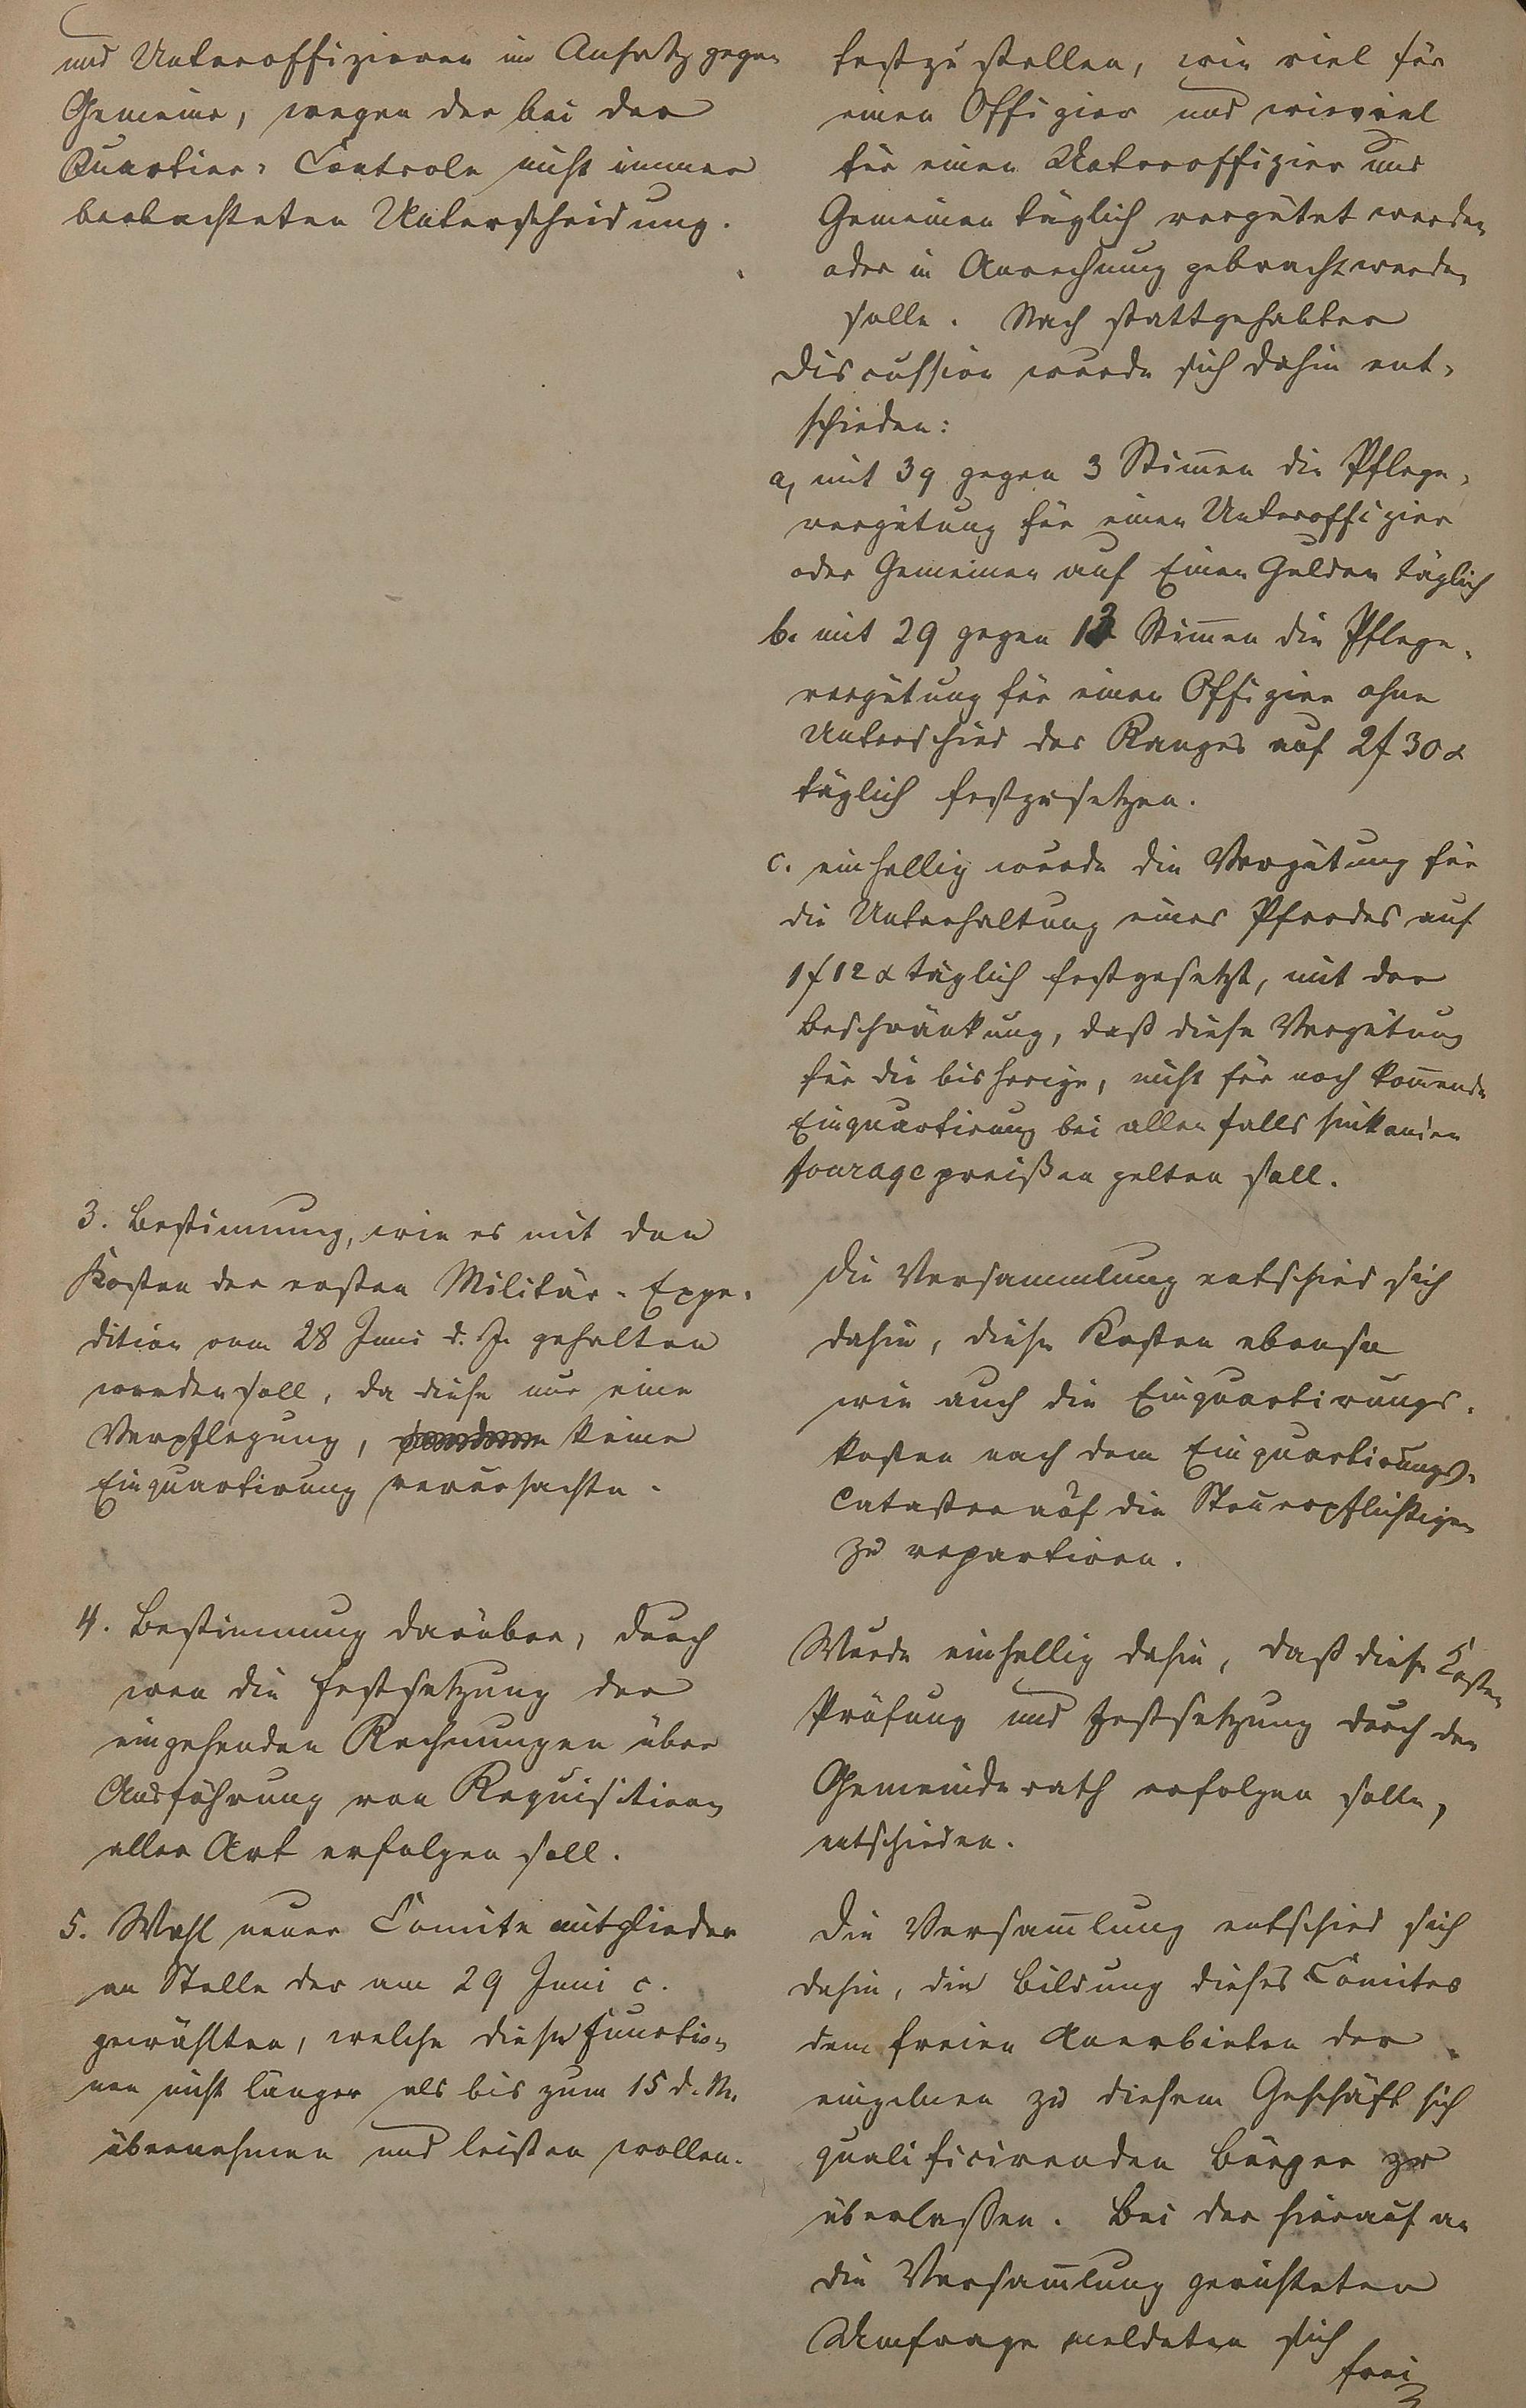 und Unteroffizieren im Ansatz gegen
Gemeine, wegen der bei der
Quartier-Controle nicht immer
beobachteten Unterscheidung.
3. Bestimmung, wie es mit den
Kosten der ersten Militär-Expe-
dition vom 28 Juni d. J. gehalten
werden soll, da diese nur eine
Verpflegung, keine
Einquartirung verursachte.
4. Bestimmung darüber, durch
wen die Festsetzung der
eingehenden Rechnungen über
Ausführung von Requisitionen
aller Art erfolgen soll.
5. Wahl neuer Comite mitglieder
an Stelle der am 29 Juni c.
gewählten, welche diese Functio-
nen nicht länger als bis zum 15 d. M.
übernehmen und leisten wollen.
festzustellen, wie viel für
einen Offizier und wieviel
für einen Unteroffizier und
Gemeinen täglich vergütet werden
oder in Anrechnung gebracht werden
solle. Nach stattgehabter
Discussion wurde sich dahin ent-
schieden:
a, mit 39 gegen 3 Stimen die Pflege-
vergütung für einen Unteroffizier
oder Gemeinen auf Einen Gulden täglich
b. mit 29 gegen 13 Stimen die Pflege-
vergütung für einen Offizier ohne
Unterschied des Ranges auf 2f 30 x
täglich festzusetzen.
c. einhellig wurde die Vergütung für
die Unterhaltung eines Pferdes auf
1f 12 x täglich festgesetzt, mit der
Beschränkung, daß diese Vergütung
für die bisherige, nicht für noch komende
Einquartirung bei allen falls sinkenden
fouragepreißen gelten soll.
Die Versammlung entschied sich
dahin, diese Kosten ebenso
wie auch die Einquartirungs-
kosten nach dem Einquartirungs-
Cataster auf die Steuerpflichtigen
zu repartiren.
Wurde einhellig dahin, daß diese Kosten
Prüfung und Festsetzung durch den
Gemeinderath erfolgen solle,
entschieden.
Die Versamlung entschied sich
dahin, die Bildung dieses Comites
dem freien Anerbieten der
einzelnen zu diesem Geschäft sich
qualificirenden Bürger zu
überlassen. Bei der hierauf an
die Versamlung gerichteten
Umfrage meldeten sich
frei